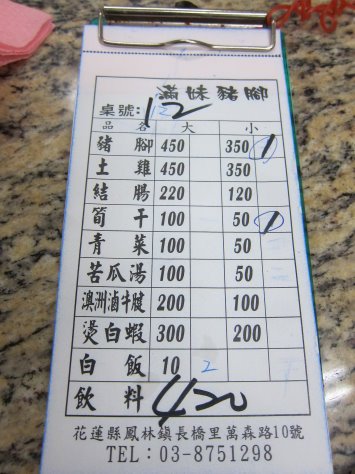 滿妹豬腳
桌號: 12
品名 大 小
豬腳 450 350 1
土雞 450 350
結腸 220 120
筍干 100 50 1
青菜 100 50
苦瓜湯 100 50
澳洲滷牛腱 200 100
燙白蝦 300 200
白飯 10 2
飲料 420
花蓮縣鳳林鎮長橋里萬森路10號
TEL：03-8751298